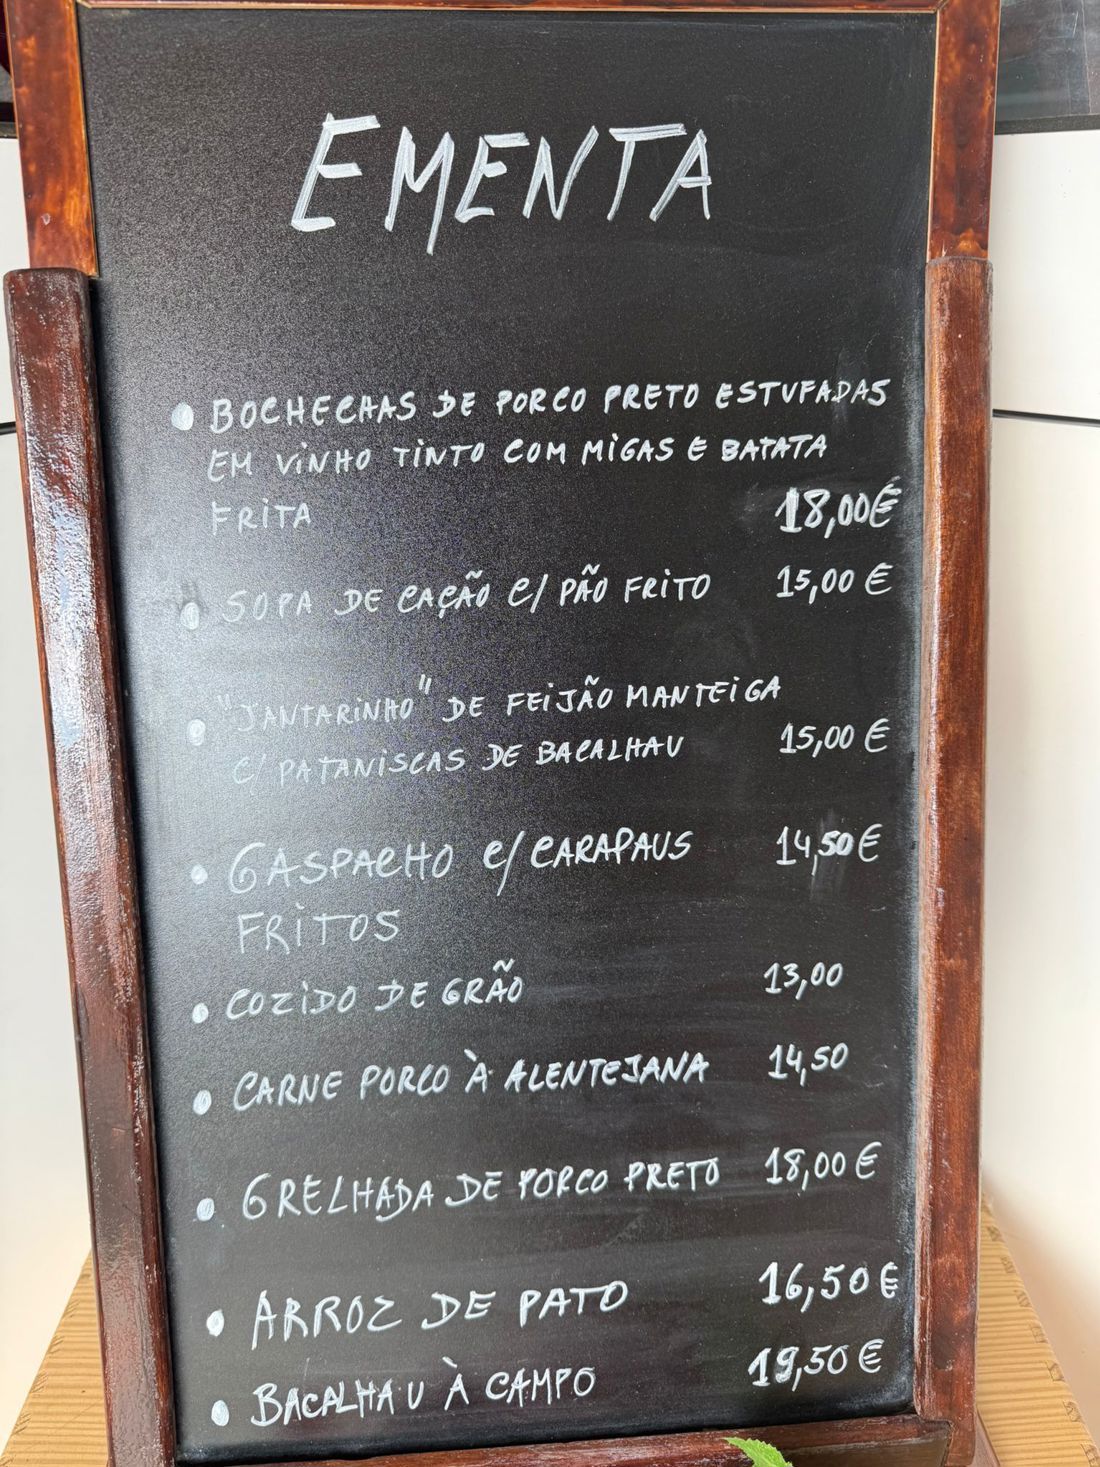 EMENTA
• BOCHECHAS DE PORCO PRETO ESTUFADAS
EM VINHO TINTO COM MIGAS E BATATA
FRITA 18,00€
• SOPA DE CAÇÃO C/ PÃO FRITO 15,00 €
• "JANTARINHO" DE FEIJÃO MANTEIGA
C/ PATANISCAS DE BACALHAU 15,00 €
• GASPACHO C/ CARAPAUS 14,50 €
FRITOS
• COZIDO DE GRÃO 13,00
• CARNE PORCO À ALENTEJANA 14,50
• GRELHADA DE PORCO PRETO 18,00 €
• ARROZ DE PATO 16,50 €
• BACALHAU À CAMPO 19,50 €